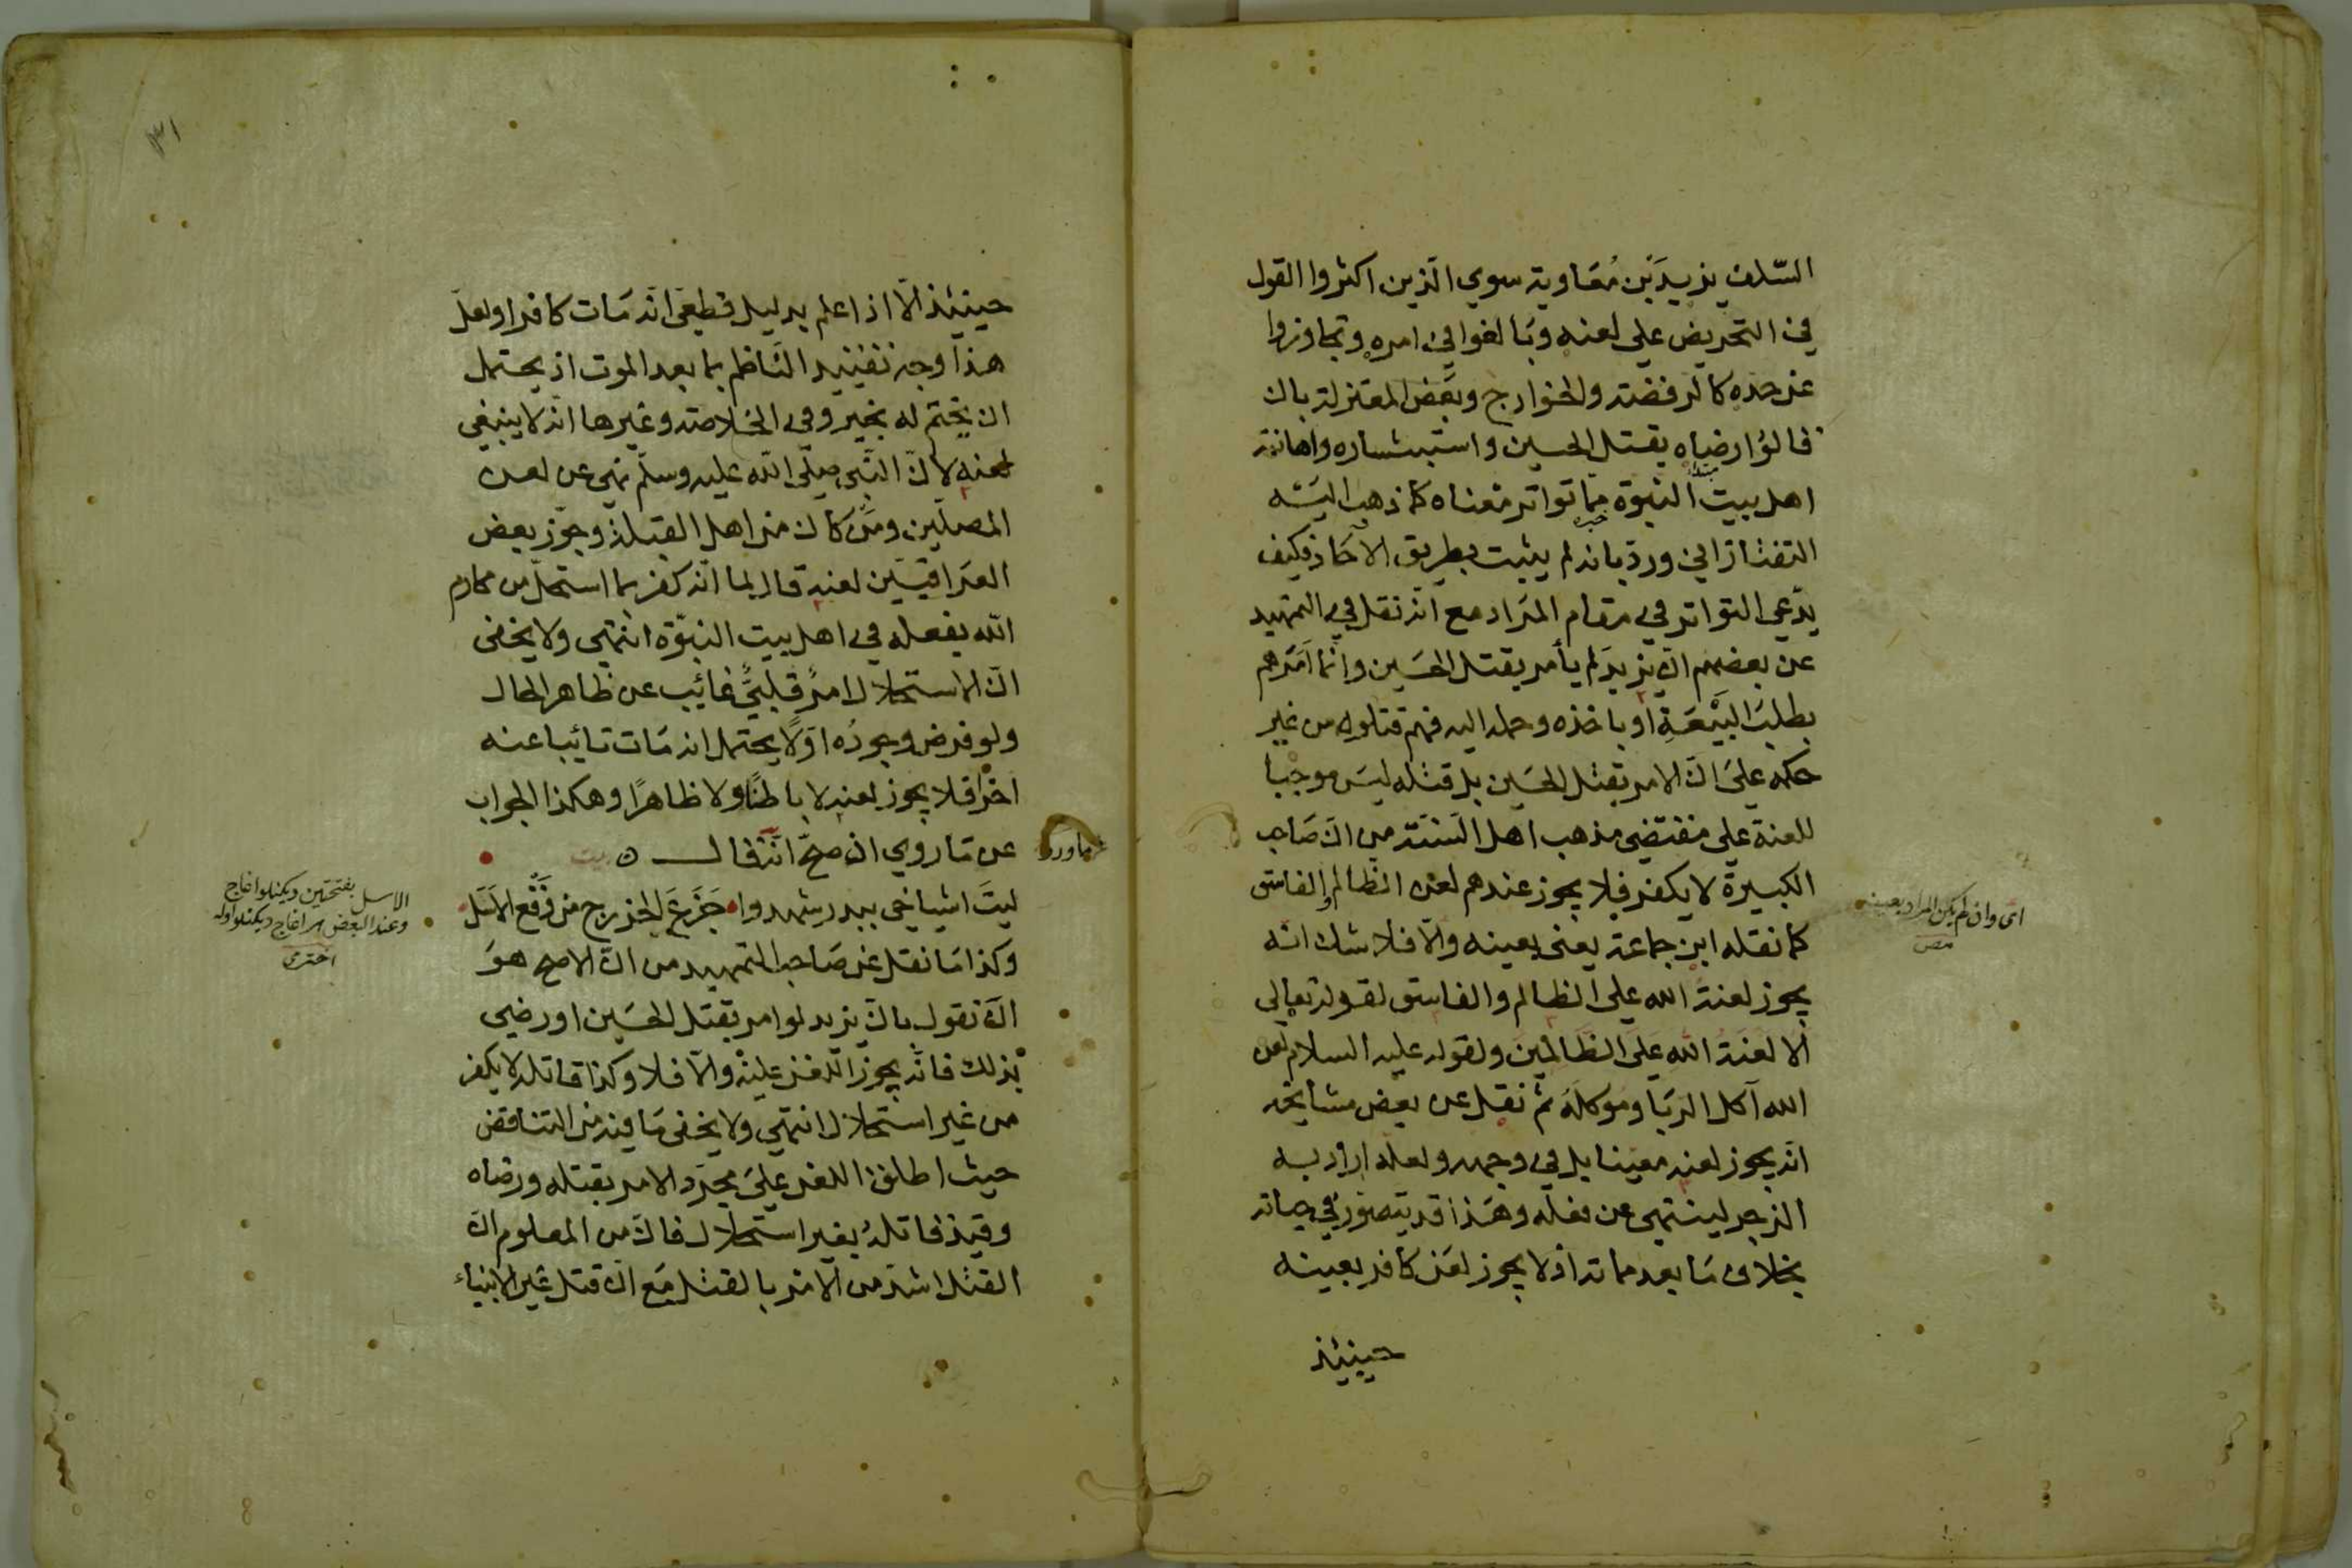 السّلف يزيدَ بن مُعَاوية سوي الذين اكثروا القول
في التحريض على لعنه وبَالغوا في امره وتجاوزوا
عن حده كالرفضة والخوارج وبعض المعتزلة بان
قالوُا رضاه بقتل الحسين واستبشاره واهانة
اهل بيت النبوّة ممّا تواتر معناه كما ذهب اليَه
التفتازاني وردّ بانه لم يثبت بطريق الآحَاد فكيف
يدّعي التواتر في مقام المرَاد مع انّه نقل في التمهيد
عن بعضهم انّ يزيدَ لم يأمر بقتل الحسَين وانّما امَرهم
بطلبَ البَيْعَةِ او باخذه وحمله اليه فهم قتلوه من غير
حكمه علىَ انّ الامر بقتل الحسَين بل قتله ليسَ موجبا
للعنة على مقتضى مذهب اهل السَنّة من انّ صَاحب
الكبيرة لا يكفر فلا يجوز عندهم لعن الظالم والفاسق
كما نقله ابن جماعة يعنى بعينه والّا فلا شك انه
يجوز لعنة الله على الظالم والفاسق لقوله تعالى
ألا لعنَةُ الله عَلىَ الظَالمِينَ ولقوله عليه السلام لعن
الله آكل الربَا وموكلَه ثم نقل عن بعض مشايخه
انّه يجوز لعنه معيّنا بل في وجهه ولعله اراد به
الزجر لينتهى عن فعله وهَذا قد يتصّور في حياته
بخلاف مَا بعد مماته اذ لا يجوز لعَن كافر بعينه
حينئذ
مبتدا
خبره
اى وان لم يكن المراد بعينه
مص
١٣١
حينئِذ الّا اذا علم بدليل قطعىّ انّه مَات كافرا ولعلّ
هذا وجه تفنيد النَاظم بما بعد الموت اذ يحتمل
ان يختم له بخير وفى الخلاصة وغيرها انّه لا ينبغى
لعنه لانّ النّبى صلّى اللّه عليه وسلّم نهى عن لعن
المصلّين ومَن كان من اهل القبلة وجوّز بعض
العرَاقيّين لعنه قال لما انّه كفر بما استحلّ من محارم
اللّه بفعله في اهل بيت النبوّة انتهى ولا يخفى
انّ الاستحلال امرٌ قلبيٌّ غائب عن ظاهر الحال
ولو فرض وجودُه اوّلًا يحتمل انه مَات تائبا عنه
اخرًا فلا يجوز لعنه لا باطنًا ولا ظاهرًا وهكذا الجواب
عن مَا روي ان صحّ انّه قال ه
ليتَ اشياخى ببدر شهدوا جَزَعَ الخزرج من وَقْع الاَسَل
وكذا مَا نقل عن صَاحب التمهيد من انّ الاصح هوَ
انْ نقول بانّ يزيد لو امر بقتل الحسَين او رضى
بذلك فانّه يجوز اللّعن عليْه والّا فلا وكذا قاتله لا يكفر
من غير استحلال انتهى ولا يخفى مَا فيه من التناقض
حيث اطلق اللعن علىَ مجرّد الامر بقتله ورضَاه
وقيّد قاتلهُ بغير استحلال فانّ من المعلوم انّ
القتل اشدّ من الامر بالقتل مَع انّ قتل غير الانبياء
الاسل بفتحتين ديكنلو اغاج
وعند البعض اغاج ديكنلو اوله
اخترى